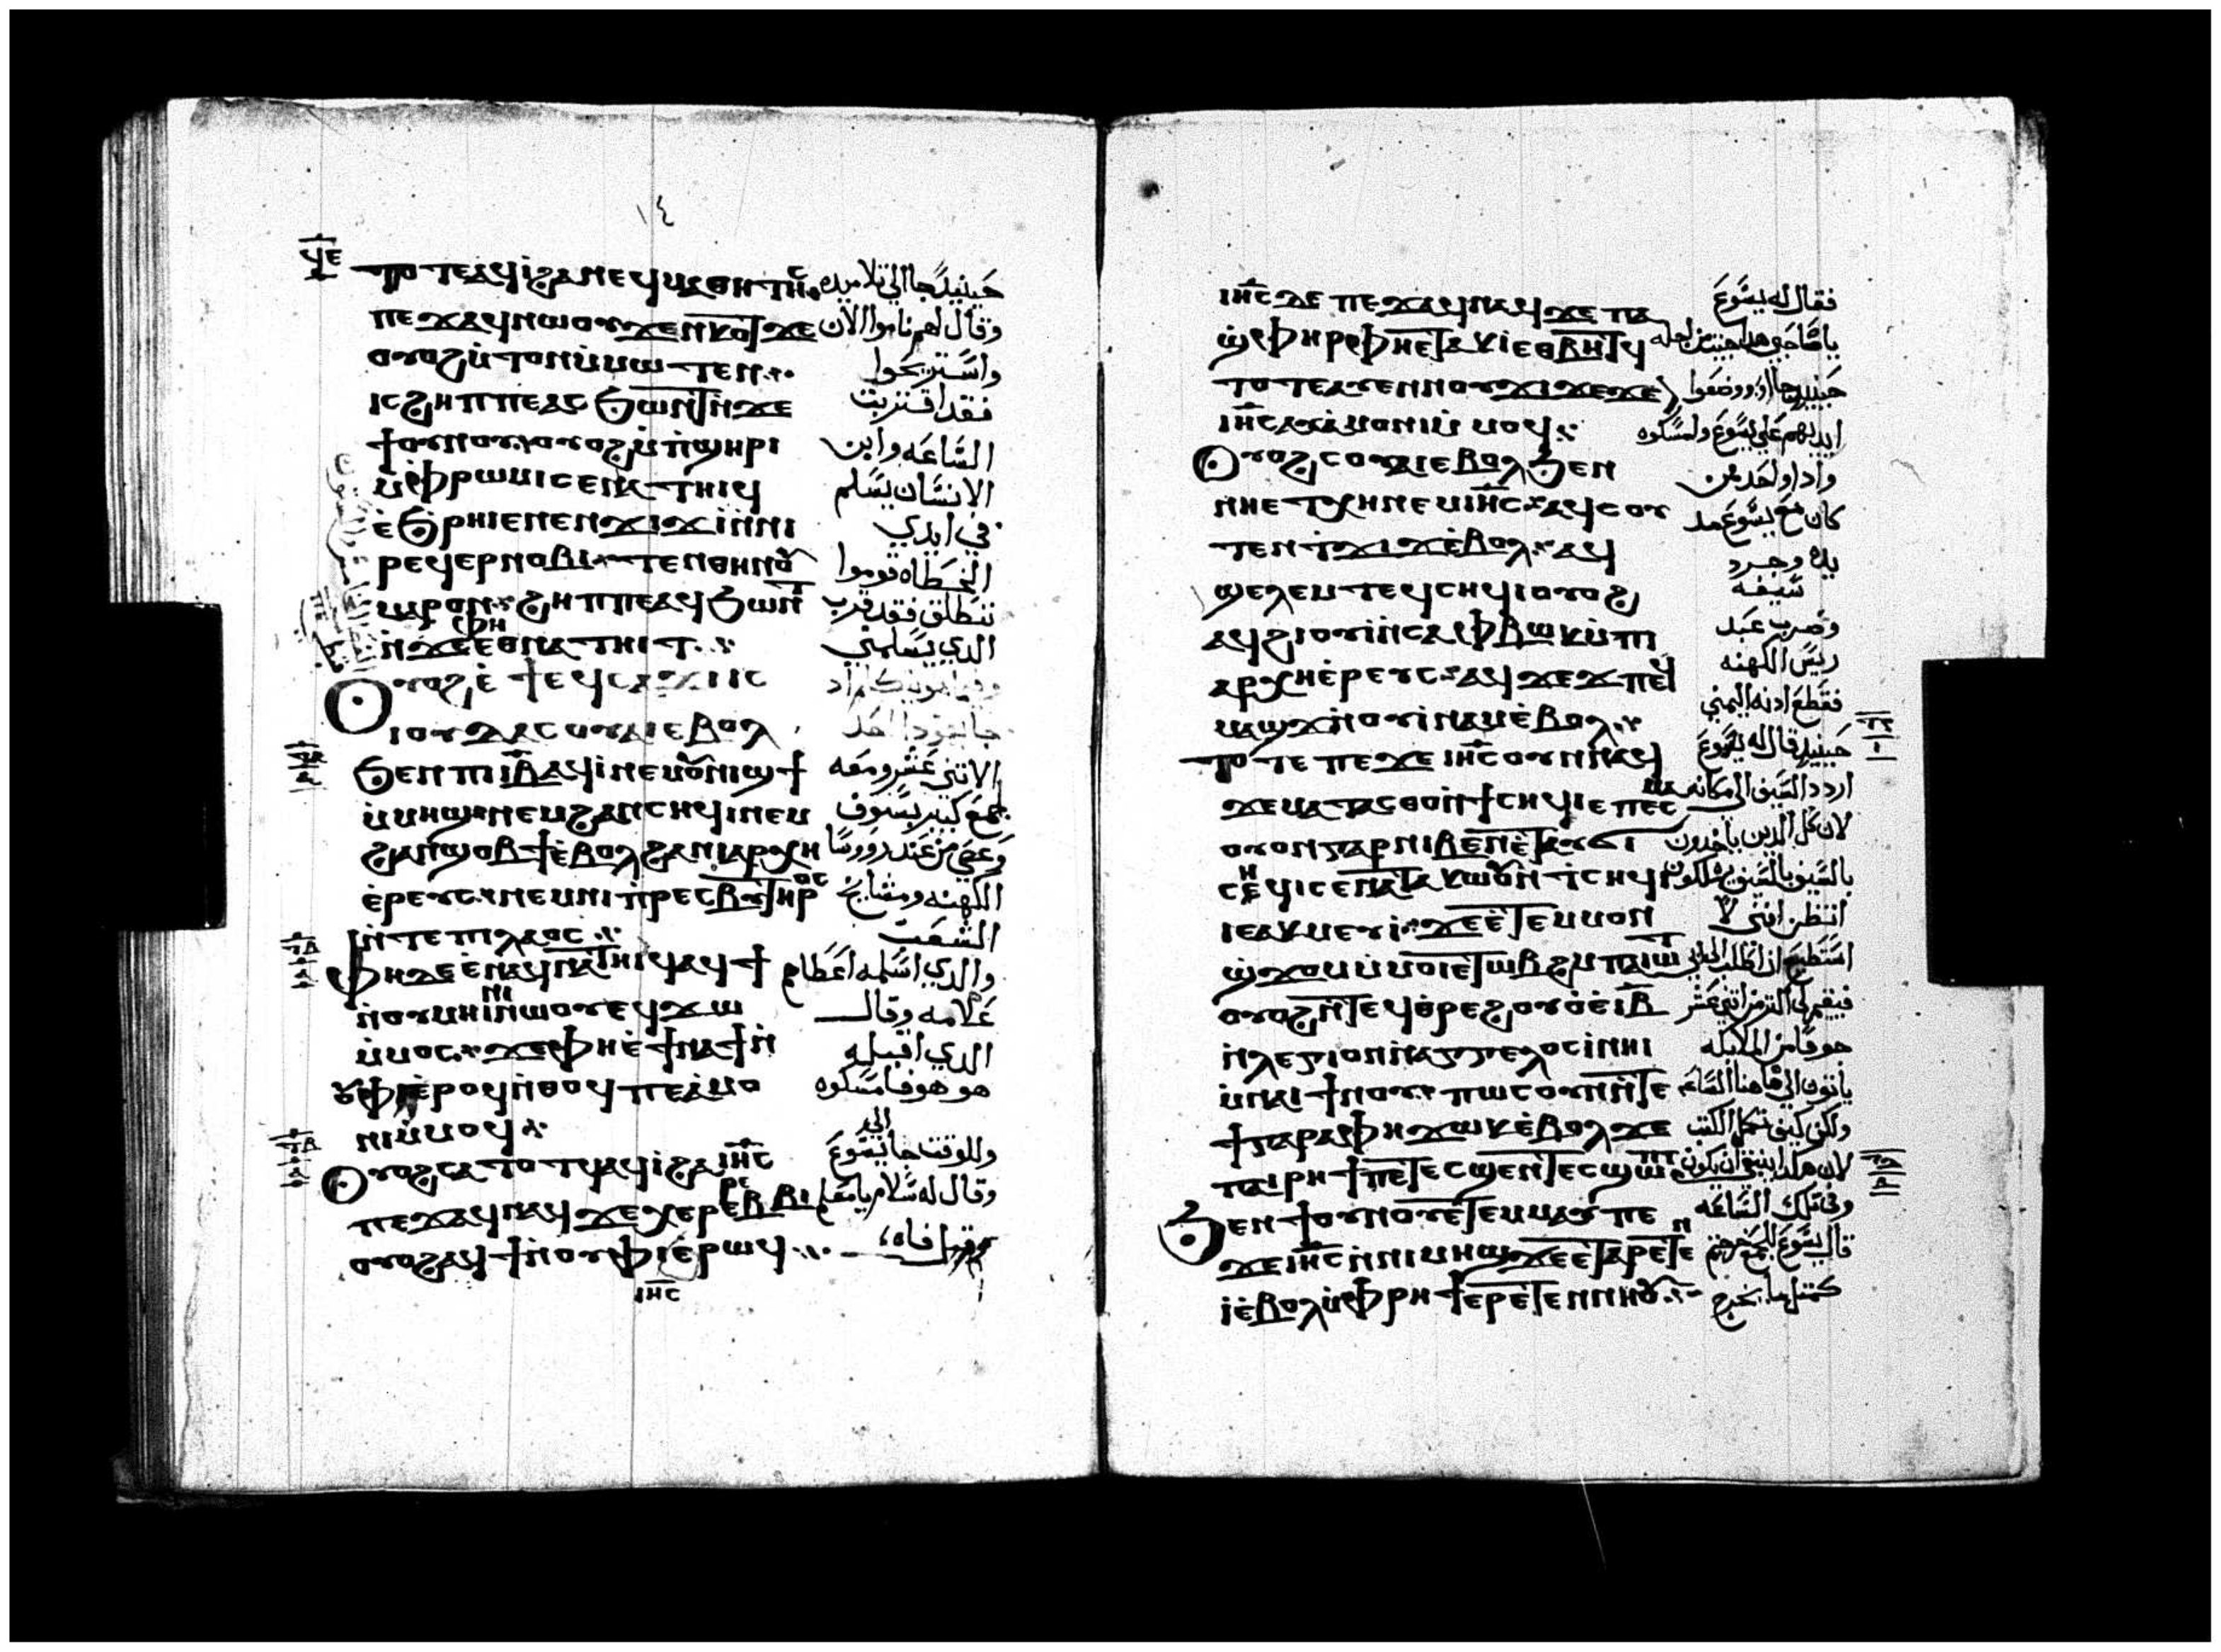 ١٤
ϥⲉ
ⲧⲟⲧⲉⲁϥⲓϩⲁⲛⲉϥⲙⲁⲑⲏⲧⲏⲥ حينيذ جا الي تلاميده
ⲡⲉϫⲁϥⲛⲱⲟⲩϫⲉⲛⲕⲟⲧϫⲉ وقال لهم ناموا الان
ⲟⲩⲟϩⲙ̇ⲧⲟⲛⲙ̇ⲙⲱⲧⲉⲛ واستريحوا
ⲓⲥϩⲏⲡⲡⲉⲁⲥϧⲱⲛⲧⲛ̇ϫⲉ فقد اقتربت
ϯⲟⲩⲛⲟⲩⲟⲩⲟϩⲙ̇ⲡ̇ϣⲏⲣⲓ الساعه وابن
ⲙ̇ⲫⲣⲱⲙⲓⲥⲉⲛⲁⲧⲏⲓϥ الانسان يسلم
ⲉ̇ϧⲣⲏⲓⲉⲛⲉⲛϫⲓϫⲓⲛ̇ⲛⲓ في ايدي
ⲣⲉϥⲉⲣⲛⲟⲃⲓⲧⲉⲛⲑⲏⲛⲟⲩ الخطاه قوموا
ⲙⲁⲣⲟⲛϩⲏⲡⲡⲉⲁϥϧⲱⲛⲧ ننطلق فقد قرب
ⲛ̇ϫⲉⲫⲏⲉⲑⲛⲁⲧⲏⲓⲧ الدي يسلمني
ⲟⲩⲟϩⲉ̇ⲧⲉϥⲥⲁϫⲓⲓⲥ
ⲓⲟⲩⲇⲁⲥⲟⲩⲁⲓⲉⲃⲟⲗ
ϧⲉⲛⲡⲓⲓ̅ⲃ̅ⲁϥⲓⲛⲉⲙⲟⲩⲛⲓϣϯ الاتني عشر ومعه
ⲙ̇ⲙⲏϣⲛⲉⲙϩⲁⲛⲥⲏϥⲓⲛⲉⲙ جمع كتير بسيوف
ϩⲁⲛϣⲟⲃϯⲉ̇ⲃⲟⲗϩⲁⲛⲓⲁⲣⲭⲏ وعصي من عند رووسا
ⲉ̇ⲣⲉⲩⲥⲛⲉⲙⲛⲓⲡ̇ⲣⲉⲥⲃⲩⲧⲏⲣⲟⲥ الكهنه ومشايخ
ⲛ̇ⲧⲉⲡⲓⲗⲁⲟⲥ الشعب
ⲫⲏⲇⲉⲉ̇ⲛⲁϥⲛⲁⲧⲏⲓϥⲁϥϯ والدي اسلمه اعطاهم
ⲛ̇ⲟⲩⲙⲏⲓⲛⲓⲛⲱⲟⲩⲉϥϫⲱ علامه وقال
ⲙ̇ⲙⲟⲥϫⲉⲫⲏⲉ̇ϯⲛⲁϯⲛ̇ الدي اقبله
ⲟⲩⲫⲓⲉ̇ⲣⲟϥⲛ̇ⲑⲟϥⲡⲉⲁ̇ⲙⲟ هو هو فامسكوه
ⲛⲓⲙ̇ⲙⲟϥ
ⲟⲩⲟϩⲥⲁⲧⲟⲧϥⲁϥⲓϩⲁⲓⲏⲥ وللوقت جا الي يسوع
ⲡⲉϫⲁϥⲛⲁϥϫⲉⲭⲉⲣⲉⲣⲉⲃⲃⲓ وقال له سلام يا معلم
ⲟⲩⲟϩⲁϥϯⲛ̇ⲟⲩⲫⲓⲉ̇ⲣⲱϥ وقبل فاه
ⲓⲏⲥ
ⲓⲏⲥⲇⲉⲡⲉϫⲁϥⲛⲁϥϫⲉⲡⲁ فقال له يسوع
ϣ̇ⲫⲏⲣⲫⲏⲉⲧⲁⲕⲓ̇ⲉⲑⲃⲏⲧϥ يا صاحبي هدا جيت من اجله
ⲧⲟⲧⲉⲁⲩⲉⲛⲛⲟⲩϫⲓϫⲉϫⲉ
ⲓⲏⲥⲁⲩⲁ̇ⲙⲟⲛⲓⲙ̇ⲙⲟϥ ايديهم علي يسوع وامسكوه
ⲟⲩⲟϩⲥⲟⲩⲁⲓⲉⲃⲟⲗϧⲉⲛ وادا واحد ممن
ⲛⲏⲉⲧⲭⲏⲛⲉⲙⲓⲏⲥⲁϥⲥⲟⲩ كان مع يسوع مد
ⲧⲉⲛⲧ̇ϫⲓϫⲉ̇ⲃⲟⲗⲁϥ يده وجرد
ϣⲉⲗⲉⲙⲧⲉϥⲥⲏϥⲓⲟⲩⲟϩ سيفه
ⲁϥϩⲓⲟⲩⲓ̇ⲛ̇ⲥⲁⲫⲃⲱⲕⲙ̇ⲡⲓ وضرب عبد
ⲁⲣⲭⲏⲉ̇ⲣⲉⲩⲥⲁϥϫⲉϫⲡⲉϥ ريس الكهنه
ⲙⲁϣϫⲛ̇ⲟⲩⲓ̇ⲛⲁⲙⲉ̇ⲃⲟⲗ فقطع ادنه اليمني
ⲧⲟⲧⲉⲡⲉϫⲉⲓⲏⲥⲟⲩⲛⲛⲁϥ حينيد قال له يسوع
ϫⲉⲙⲁⲧⲁⲥⲑⲟⲛ̇ϯⲥⲏϥⲓⲉⲡⲉⲥⲙⲁ اردد السيف الي مكانه
ⲟⲩⲟⲛⲅⲁⲣⲛⲓⲃⲉⲛⲉ̇ⲧⲁⲩϭⲓ لان كل الدين ياخدون
ⲥⲏϥⲓⲥⲉⲛⲁⲧⲁⲕⲱⲟⲩⲛⲧ̇ⲥⲏϥⲓ بالسيف بالسيف يهلكون
ⲓⲉⲁⲕⲙⲉⲩⲓϫⲉⲉ̇ⲧⲉⲙⲙⲟⲛ اتظن انني لا
ϣ̇ϫⲟⲙⲙ̇ⲙⲟⲓⲉ̇ⲧⲱⲃϩⲙⲡⲁⲓⲱⲧ استطيع ان اطلب الي ابي
ⲟⲩⲟϩⲛ̇ⲧⲉϥⲑ̇ⲣⲉϩⲟⲩⲟ̇ⲉ̇ⲓ̅ⲃ̅ فيقيم لي اكتر من اتني عشر
ⲛ̇ⲗⲉⲅⲓⲟⲛⲛ̇ⲁⲅⲅⲉⲗⲟⲥⲓ̇ⲛⲏⲓ جوقا من الملايكه
ⲙ̇ⲛⲁⲓϯⲛⲟⲩⲡⲱⲥⲟⲩⲛⲛ̇ⲧⲉ ياتون الي هاهنا الساعه
ϯⲅⲣⲁⲫⲏϫⲱⲕⲉ̇ⲃⲟⲗϫⲉ ولكن كيف تكمل الكتب
ⲡⲁⲓⲣⲏϯⲡⲉⲧⲉⲥϣⲉⲛ̇ⲧⲉⲥϣⲱⲡⲓ لان هكدا ينبغي ان يكون
ϧⲉⲛϯⲟⲩⲛⲟⲩⲉ̇ⲧⲉⲙⲙⲁⲩⲡⲉ وفي تلك الساعه
ϫⲉⲓⲏⲥⲛ̇ⲛⲓⲙⲏϣϫⲉⲉ̇ⲧⲁⲣⲉⲧⲉⲛ قال يسوع للجمع خرجتم
ⲓ̇ⲉ̇ⲃⲟⲗⲙ̇ⲫⲣⲏϯⲉⲣⲉ̇ⲧⲉⲛⲛⲏⲟⲩ كمتل ما يخرج